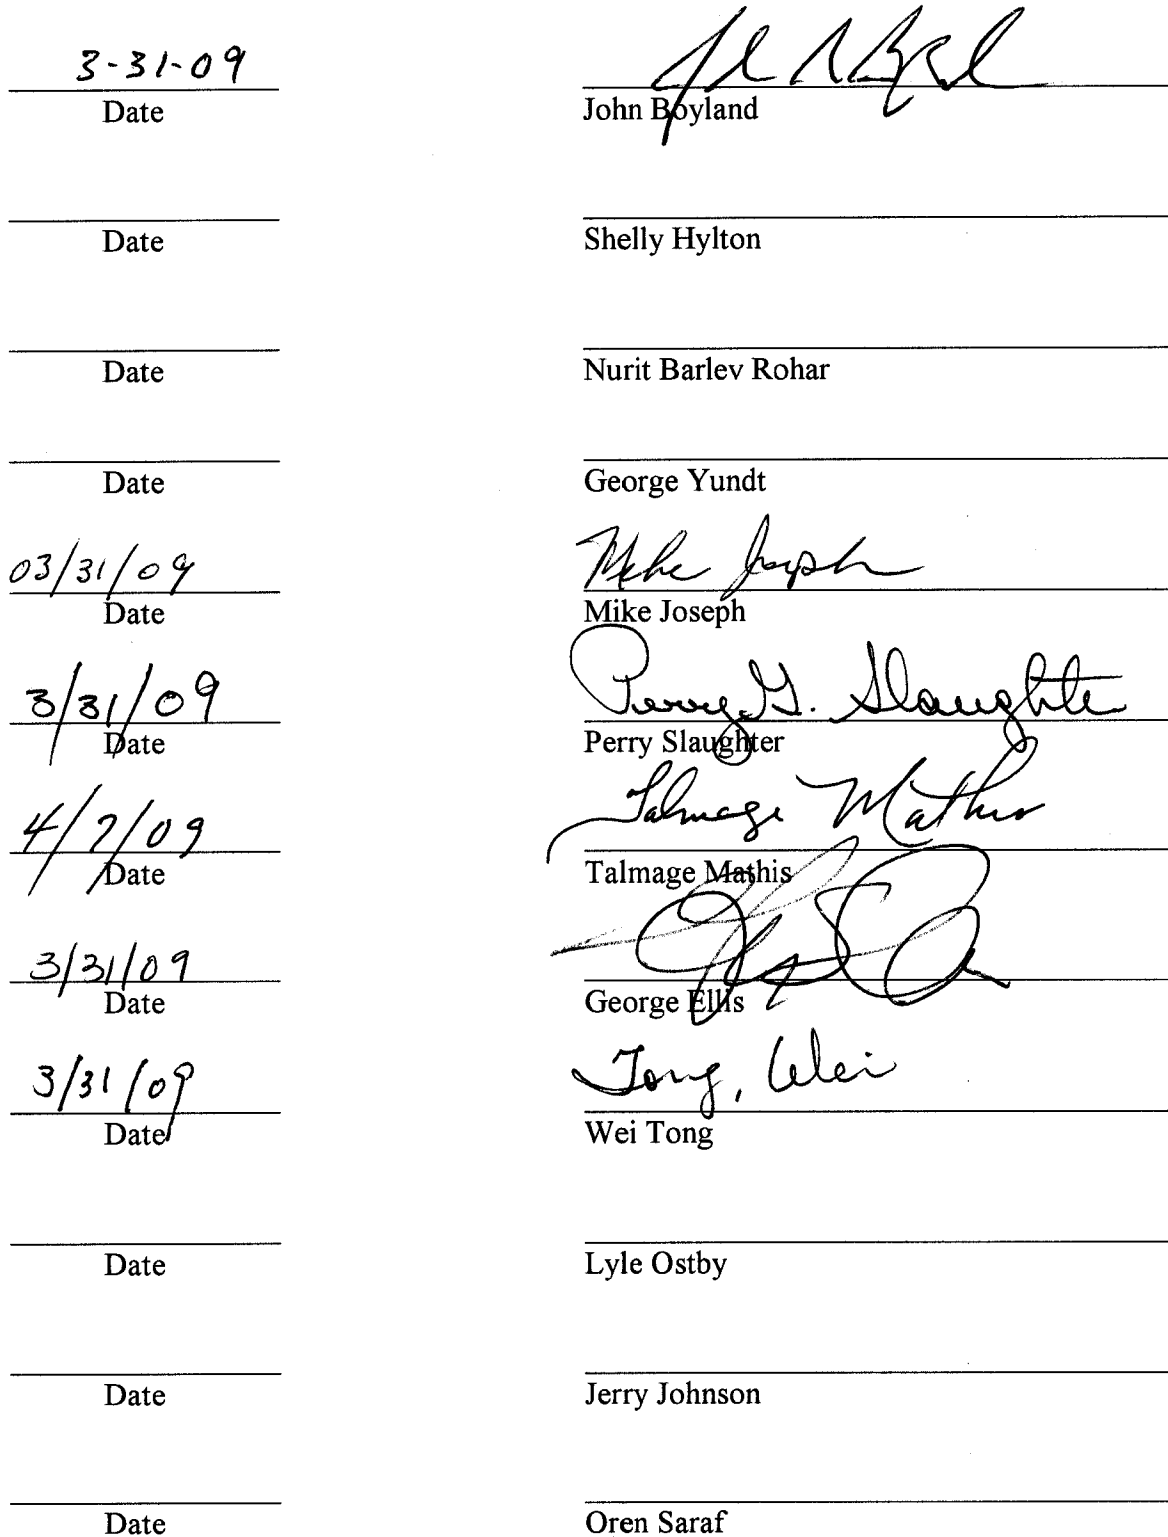 3-31-09
Date John Boyland
Date Shelly Hylton
Date Nurit Barlev Rohar
Date George Yundt
03/31/09 Mike Joseph
Date Mike Joseph
3/31/09 Perry G. Slaughter
Date Perry Slaughter
4/7/09 Talmage Mathis
Date Talmage Mathis
3/31/09
Date George Ellis
3/31/09 Tong, Wei
Date Wei Tong
Date Lyle Ostby
Date Jerry Johnson
Date Oren Saraf